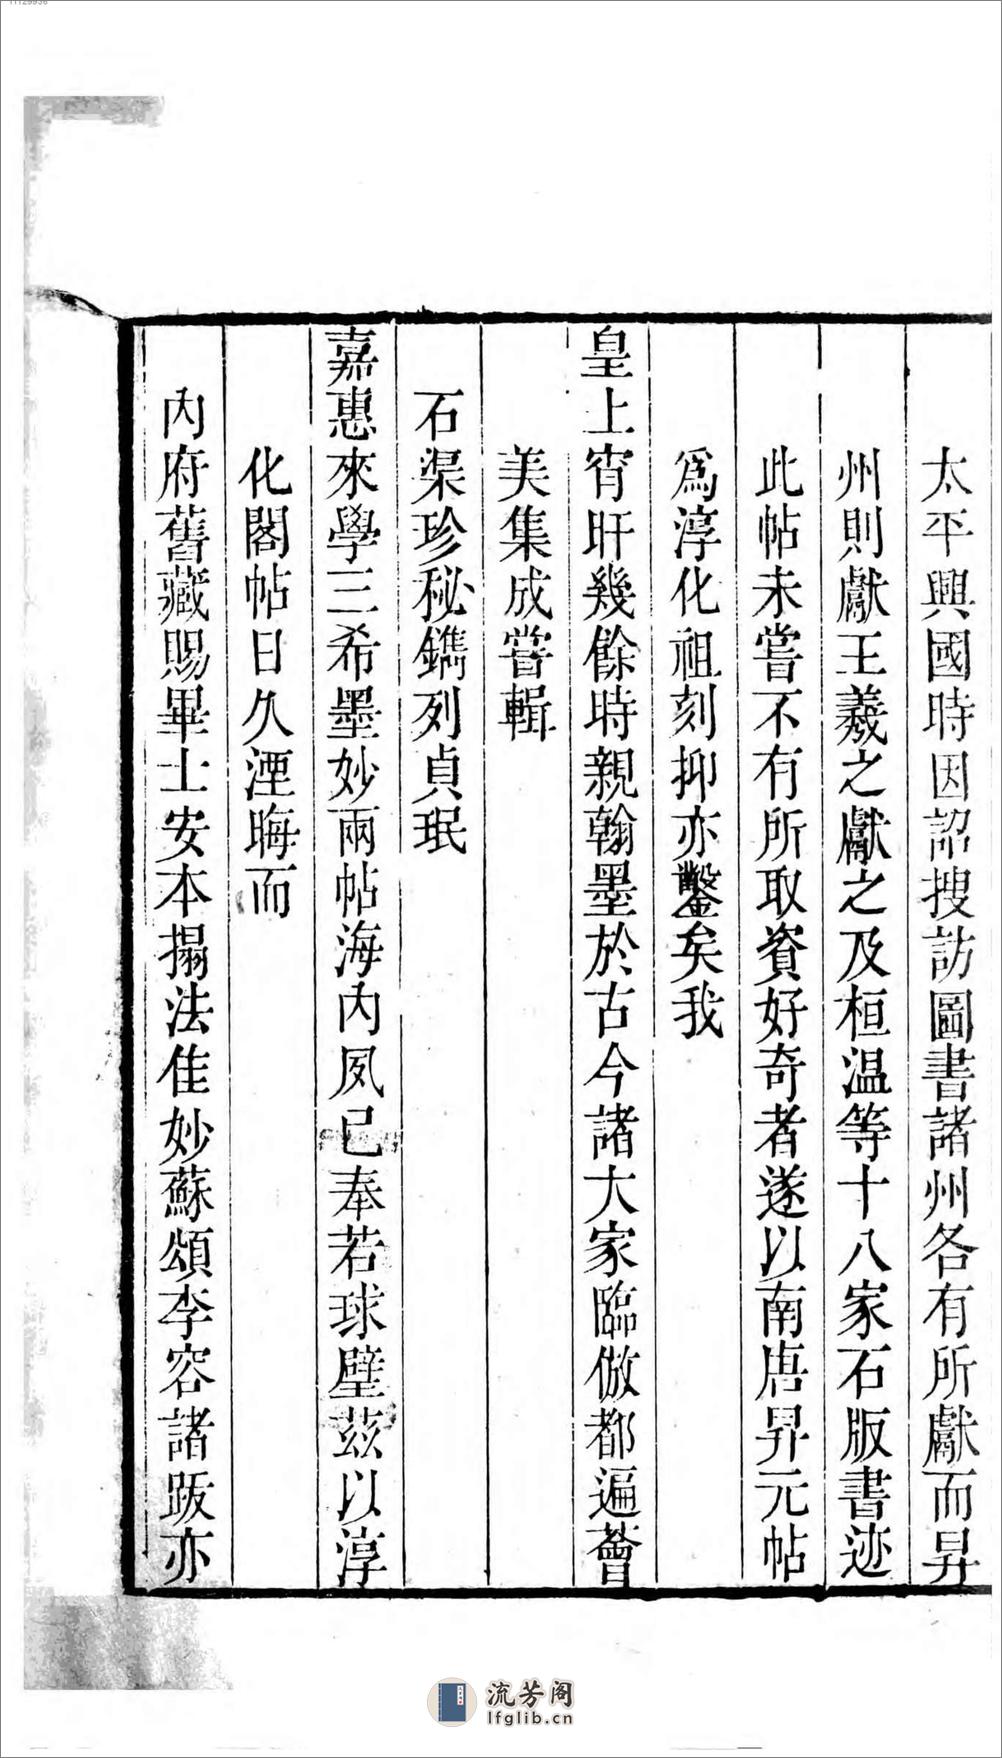 太平興國時因詔搜訪圖書諸州各有所獻而昇
州則獻王羲之獻之及桓温等十八家石版書迹
此帖未嘗不有所取資好奇者遂以南唐昇元帖
為淳化祖刻抑亦鑿矣我
皇上宵旰幾餘時親翰墨於古今諸大家臨倣都遍薈
美集成嘗輯
石渠珍秘鐫列貞珉
嘉惠來學三希墨妙兩帖海內夙已奉若球璧茲以淳
化閣帖日久湮晦而
內府舊藏賜畢士安本搨法佳妙蘇頌李容諸跋亦
流芳阁
lfglib.cn